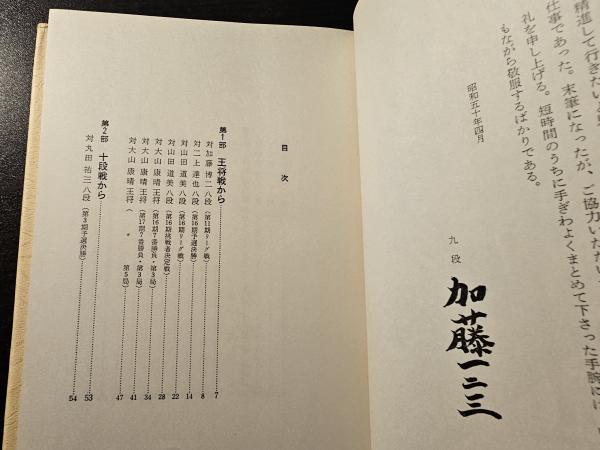 精進して行きたいと
仕事であった。末筆になったが、ご協力いただい
礼を申し上げる。短時間のうちに手ぎわよくまとめて下さった手腕には
もながら敬服するばかりである。
昭和五十年四月
九段
加藤一二三
目次
第1部 王将戦から 7
対加藤博二八段(第11期リーグ戦) 8
対二上達也八段(第16期予選決勝) 14
対山田道美八段(第16期リーグ戦) 22
対山田道美八段(第16期挑戦者決定戦) 28
対大山康晴王将(第16期7番勝負・第3局) 34
対大山康晴王将(第17期7番勝負・第3局) 41
対大山康晴王将( 〃 第5局) 47
第2部 十段戦から 53
対丸田祐三八段(第3期予選決勝) 54